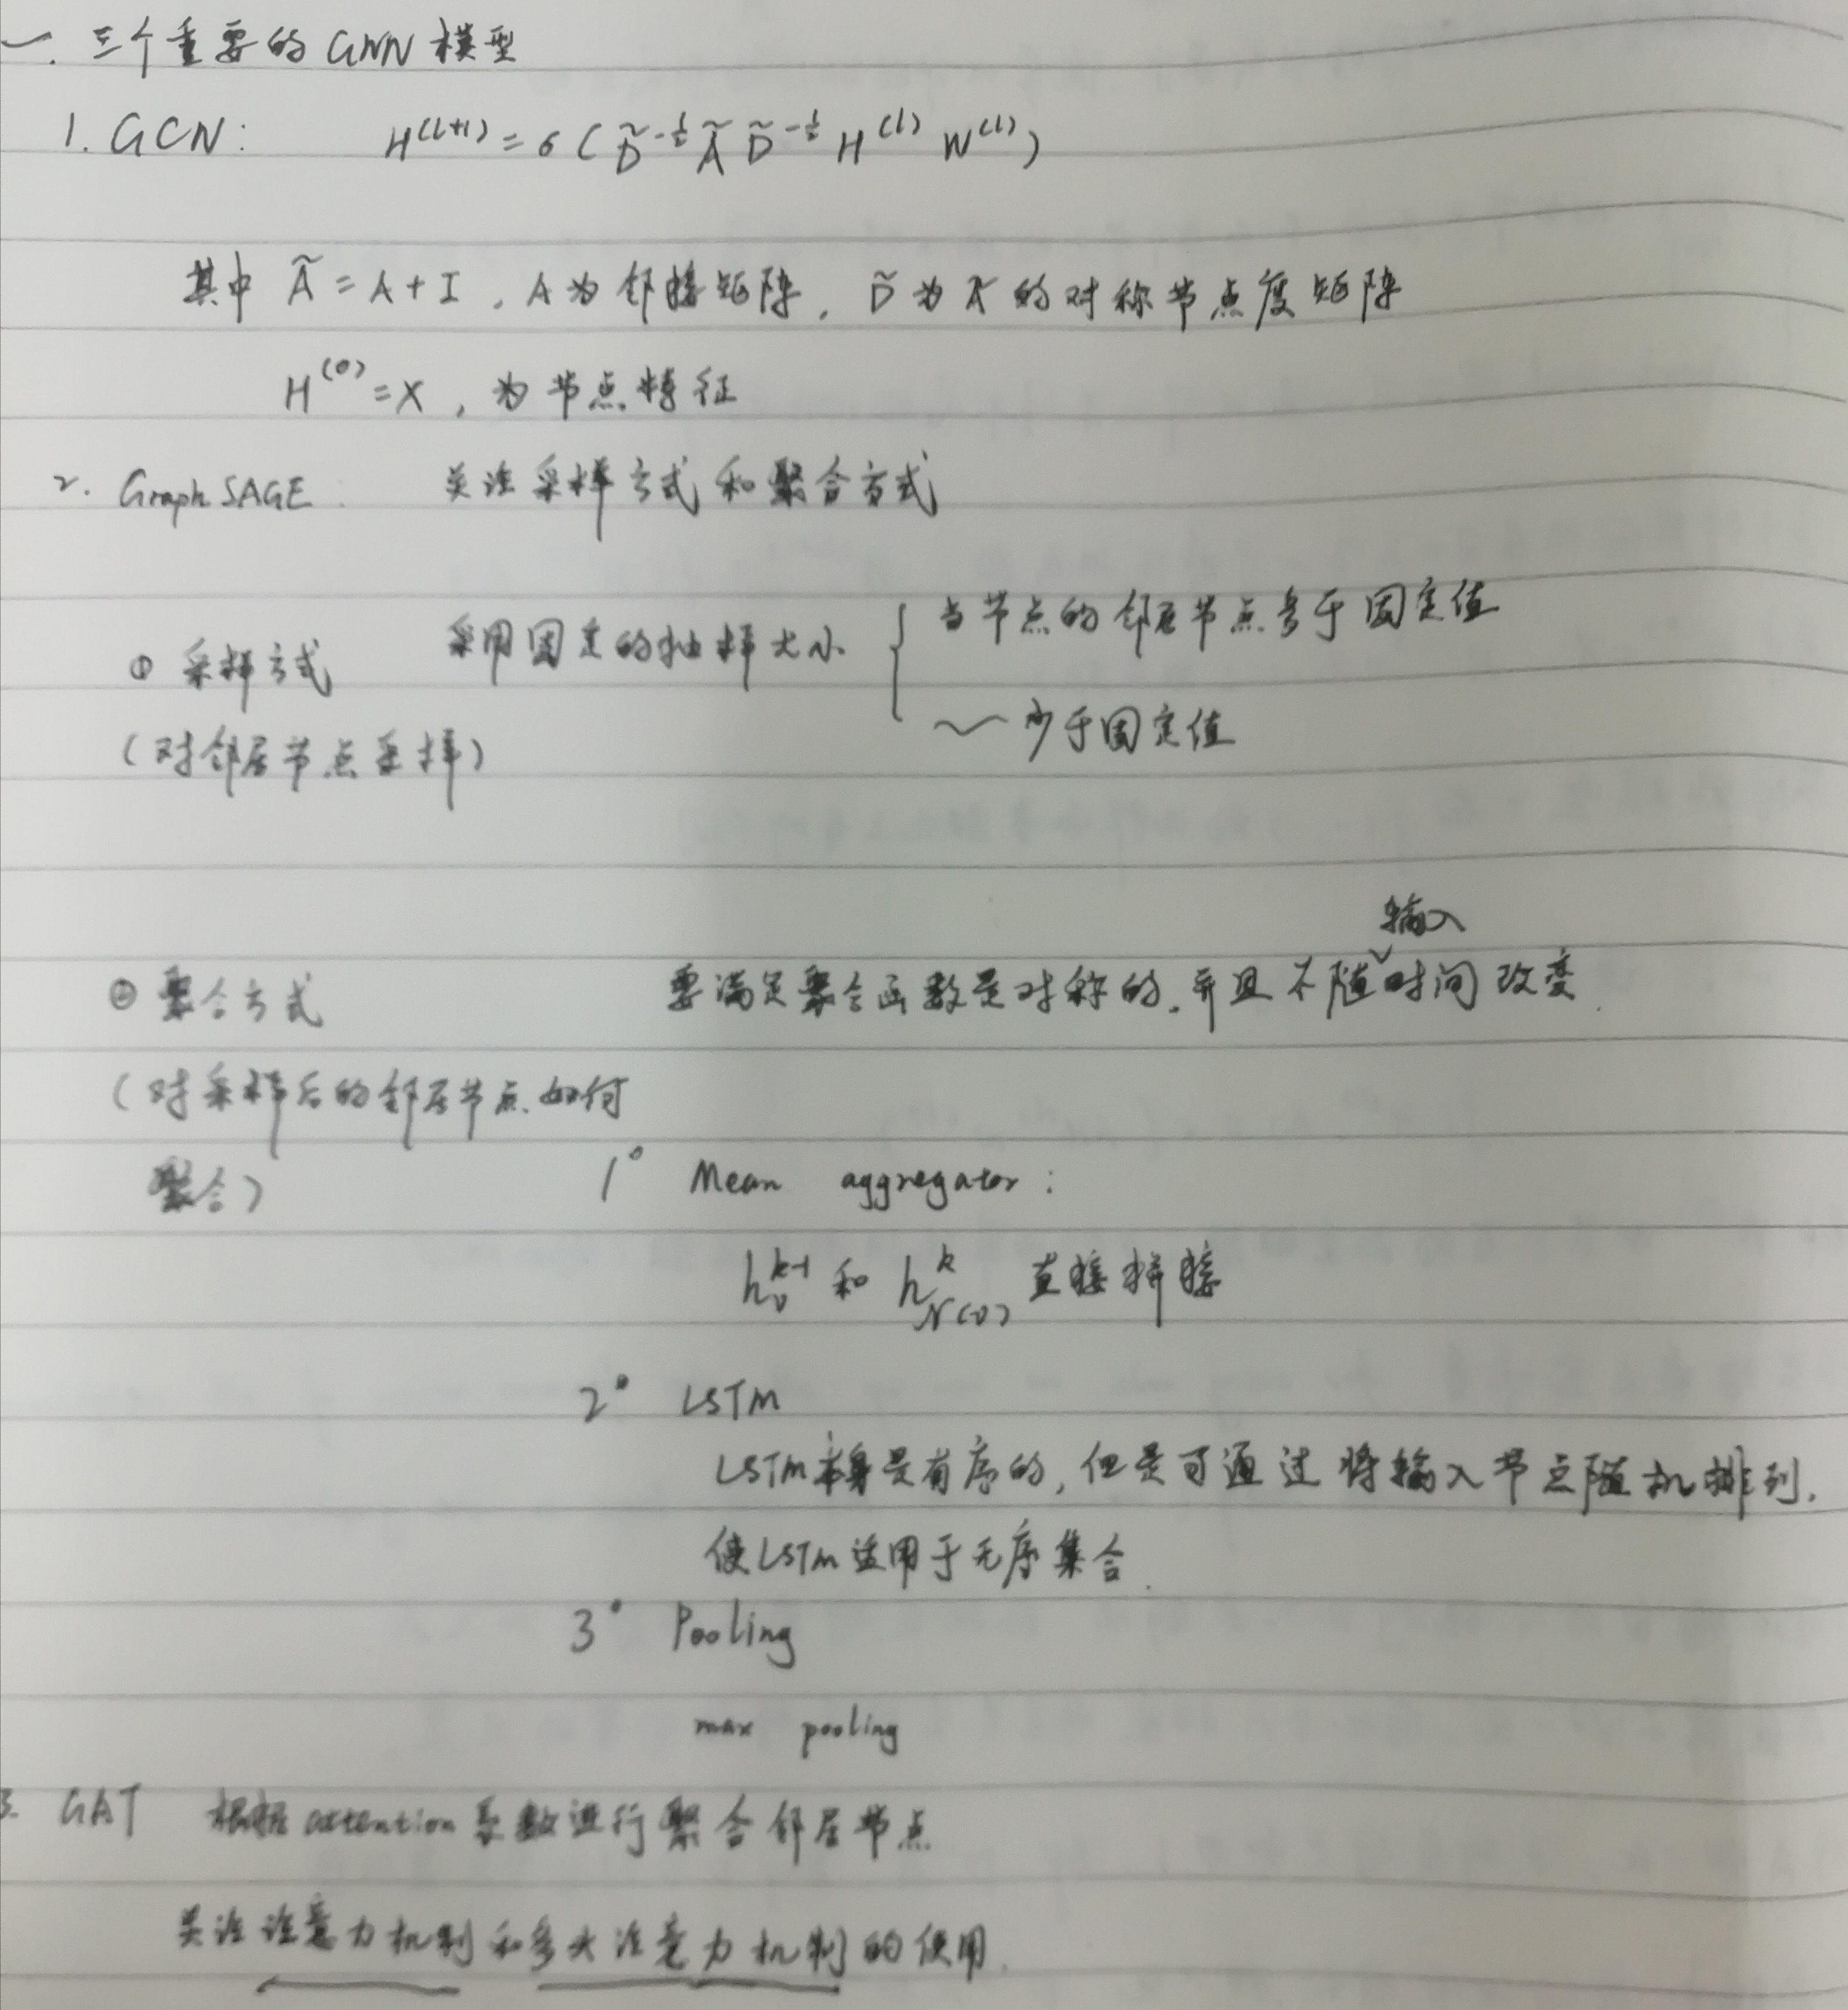 一. 三个重要的GNN模型
1. GCN: H^(l+1) = σ ( D̃^-½ Ã D̃^-½ H^(l) W^(l) )
其中 Ã = A + I , A为邻接矩阵, D̃为Ã的对称节点度矩阵
H^(0) = X , 为节点特征
2. GraphSAGE: 关注采样方式和聚合方式
① 采样方式 采用固定的抽样大小 { 当节点的邻居节点多于固定值
~ 少于固定值
(对邻居节点采样)
② 聚合方式 要满足聚合函数是对称的,并且不随输入时间改变.
(对采样后的邻居节点如何
聚合)
1° Mean aggregator:
h_v^k-1 和 h_N(v)^k 直接拼接
2° LSTM
LSTM本身是有序的,但是可通过将输入节点随机排列,
使LSTM适用于无序集合.
3° Pooling
max pooling
3. GAT 根据attention系数进行聚合邻居节点
关注注意力机制和多头注意力机制的使用.